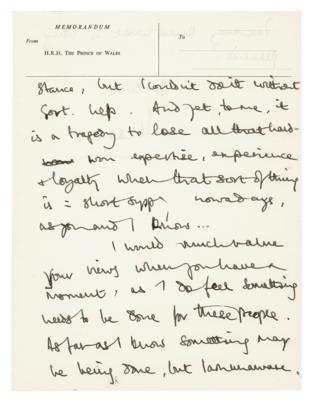 MEMORANDUM
From
To
H.R.H. THE PRINCE OF WALES
stance, but I couldn't do it without
Govt. help. And yet, to me, it
is a tragedy to lose all that hard-
won expertise, experience
& loyalty when that sort of thing
is in short supply nowadays,
as you and I know...
I would much value
your views when you have a
moment, as I do feel something
needs to be done for these people.
As far as I know something may
be being done, but I am unaware.